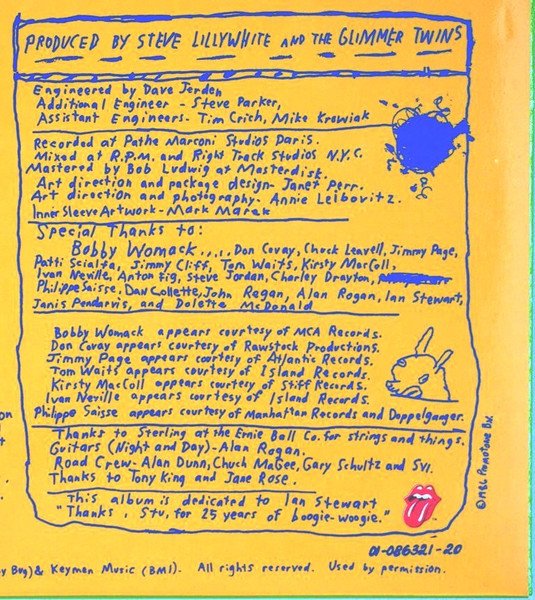 PRODUCED BY STEVE LILLYWHITE AND THE GLIMMER TWINS
Engineered by Dave Jerden
Additional Engineer - Steve Parker,
Assistant Engineers- Tim Crich, Mike Krowiak
Recorded at Pathe Marconi Studios Paris.
Mixed at R.P.M. and Right Track Studios N.Y.C.
Mastered by Bob Ludwig at Masterdisk.
Art direction and package design- Janet Perr.
Art direction and photography- Annie Leibovitz.
Inner Sleeve Artwork- Mark Marek
Special Thanks to:
Bobby Womack.... Don Covay, Chuck Leavell, Jimmy Page,
Patti Scialfa, Jimmy Cliff, Tom Waits, Kirsty MacColl,
Ivan Neville, Anton Fig, Steve Jordan, Charley Drayton,
Philippe Saisse, Dan Collette, John Regan, Alan Rogan, Ian Stewart,
Janis Pendarvis, and Dolette McDonald
Bobby Womack appears courtesy of MCA Records.
Don Covay appears courtesy of Rawstock Productions.
Jimmy Page appears courtesy of Atlantic Records.
Tom Waits appears courtesy of Island Records.
Kirsty MacColl appears courtesy of Stiff Records.
Ivan Neville appears courtesy of Island Records.
Philippe Saisse appears courtesy of Manhattan Records and Doppelganger.
Thanks to Sterling at the Ernie Ball Co. for strings and things.
Guitars (Night and Day)-Alan Rogan.
Road Crew- Alan Dunn, Chuck Magee, Gary Schultz and Svi.
Thanks to Tony King and Jane Rose.
This album is dedicated to Ian Stewart
"Thanks, Stu, for 25 years of boogie-woogie."
© 1986 Promotone B.V.
01-086321-20
Bug) & Keymen Music (BMI). All rights reserved. Used by permission.